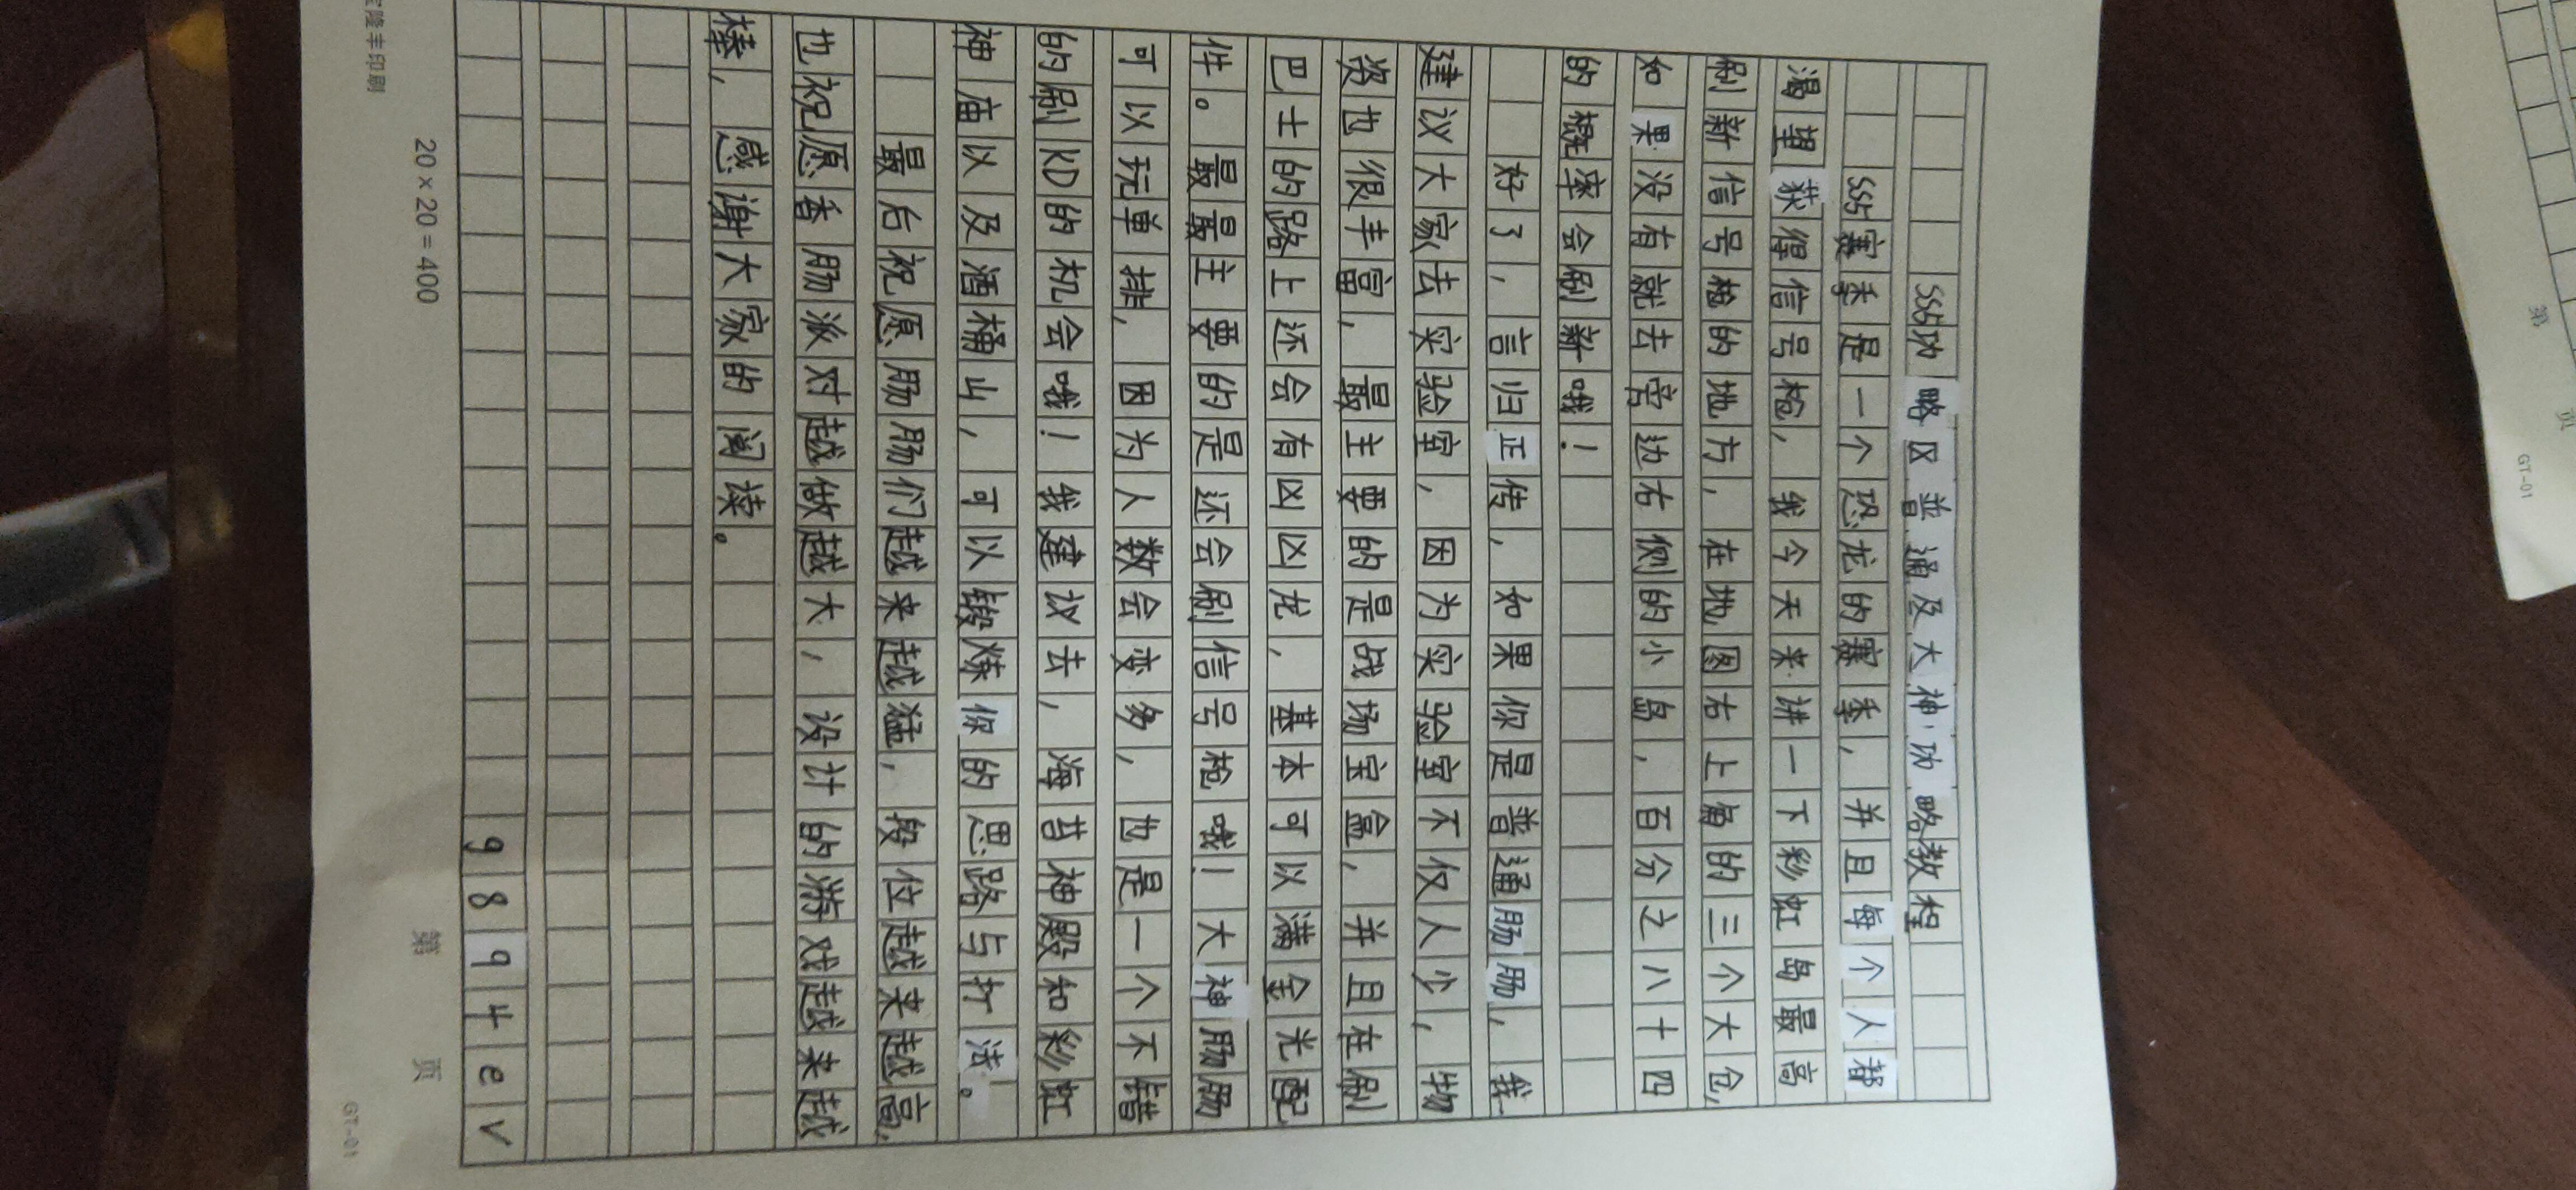 SS5功略区普通及大神功略教程
SS5赛季是一个恐龙的赛季,并且每个人都
渴望获得信号枪,我今天来讲一下彩虹岛最高
刷新信号枪的地方,在地图右上角的三个大仓,
如果没有就去旁边右侧的小岛,百分之八十四
的概率会刷新哦!
好了,言归正传,如果你是普通肠肠,我
建议大家去实验室,因为实验室不仅人少,物
资也很丰富,最主要的是战场宝盒,并且在刷
巴士的路上还会有凶凶龙,基本可以满金光配
件。最最主要的是还会刷信号枪哦!大神肠肠
可以玩单排,因为人数会变多,也是一个不错
的刷KD的机会哦!我建议去,海昔神殿和彩虹
神庙以及酒桶山,可以锻炼你的思路与打法。
最后祝愿肠肠们越来越猛,段位越来越高,
也祝愿香肠派对越做越大,设计的游戏越来越
棒,感谢大家的阅读。
9894ev
隆丰印刷
20×20=400
第 页
GT-01
第 页
GT-01